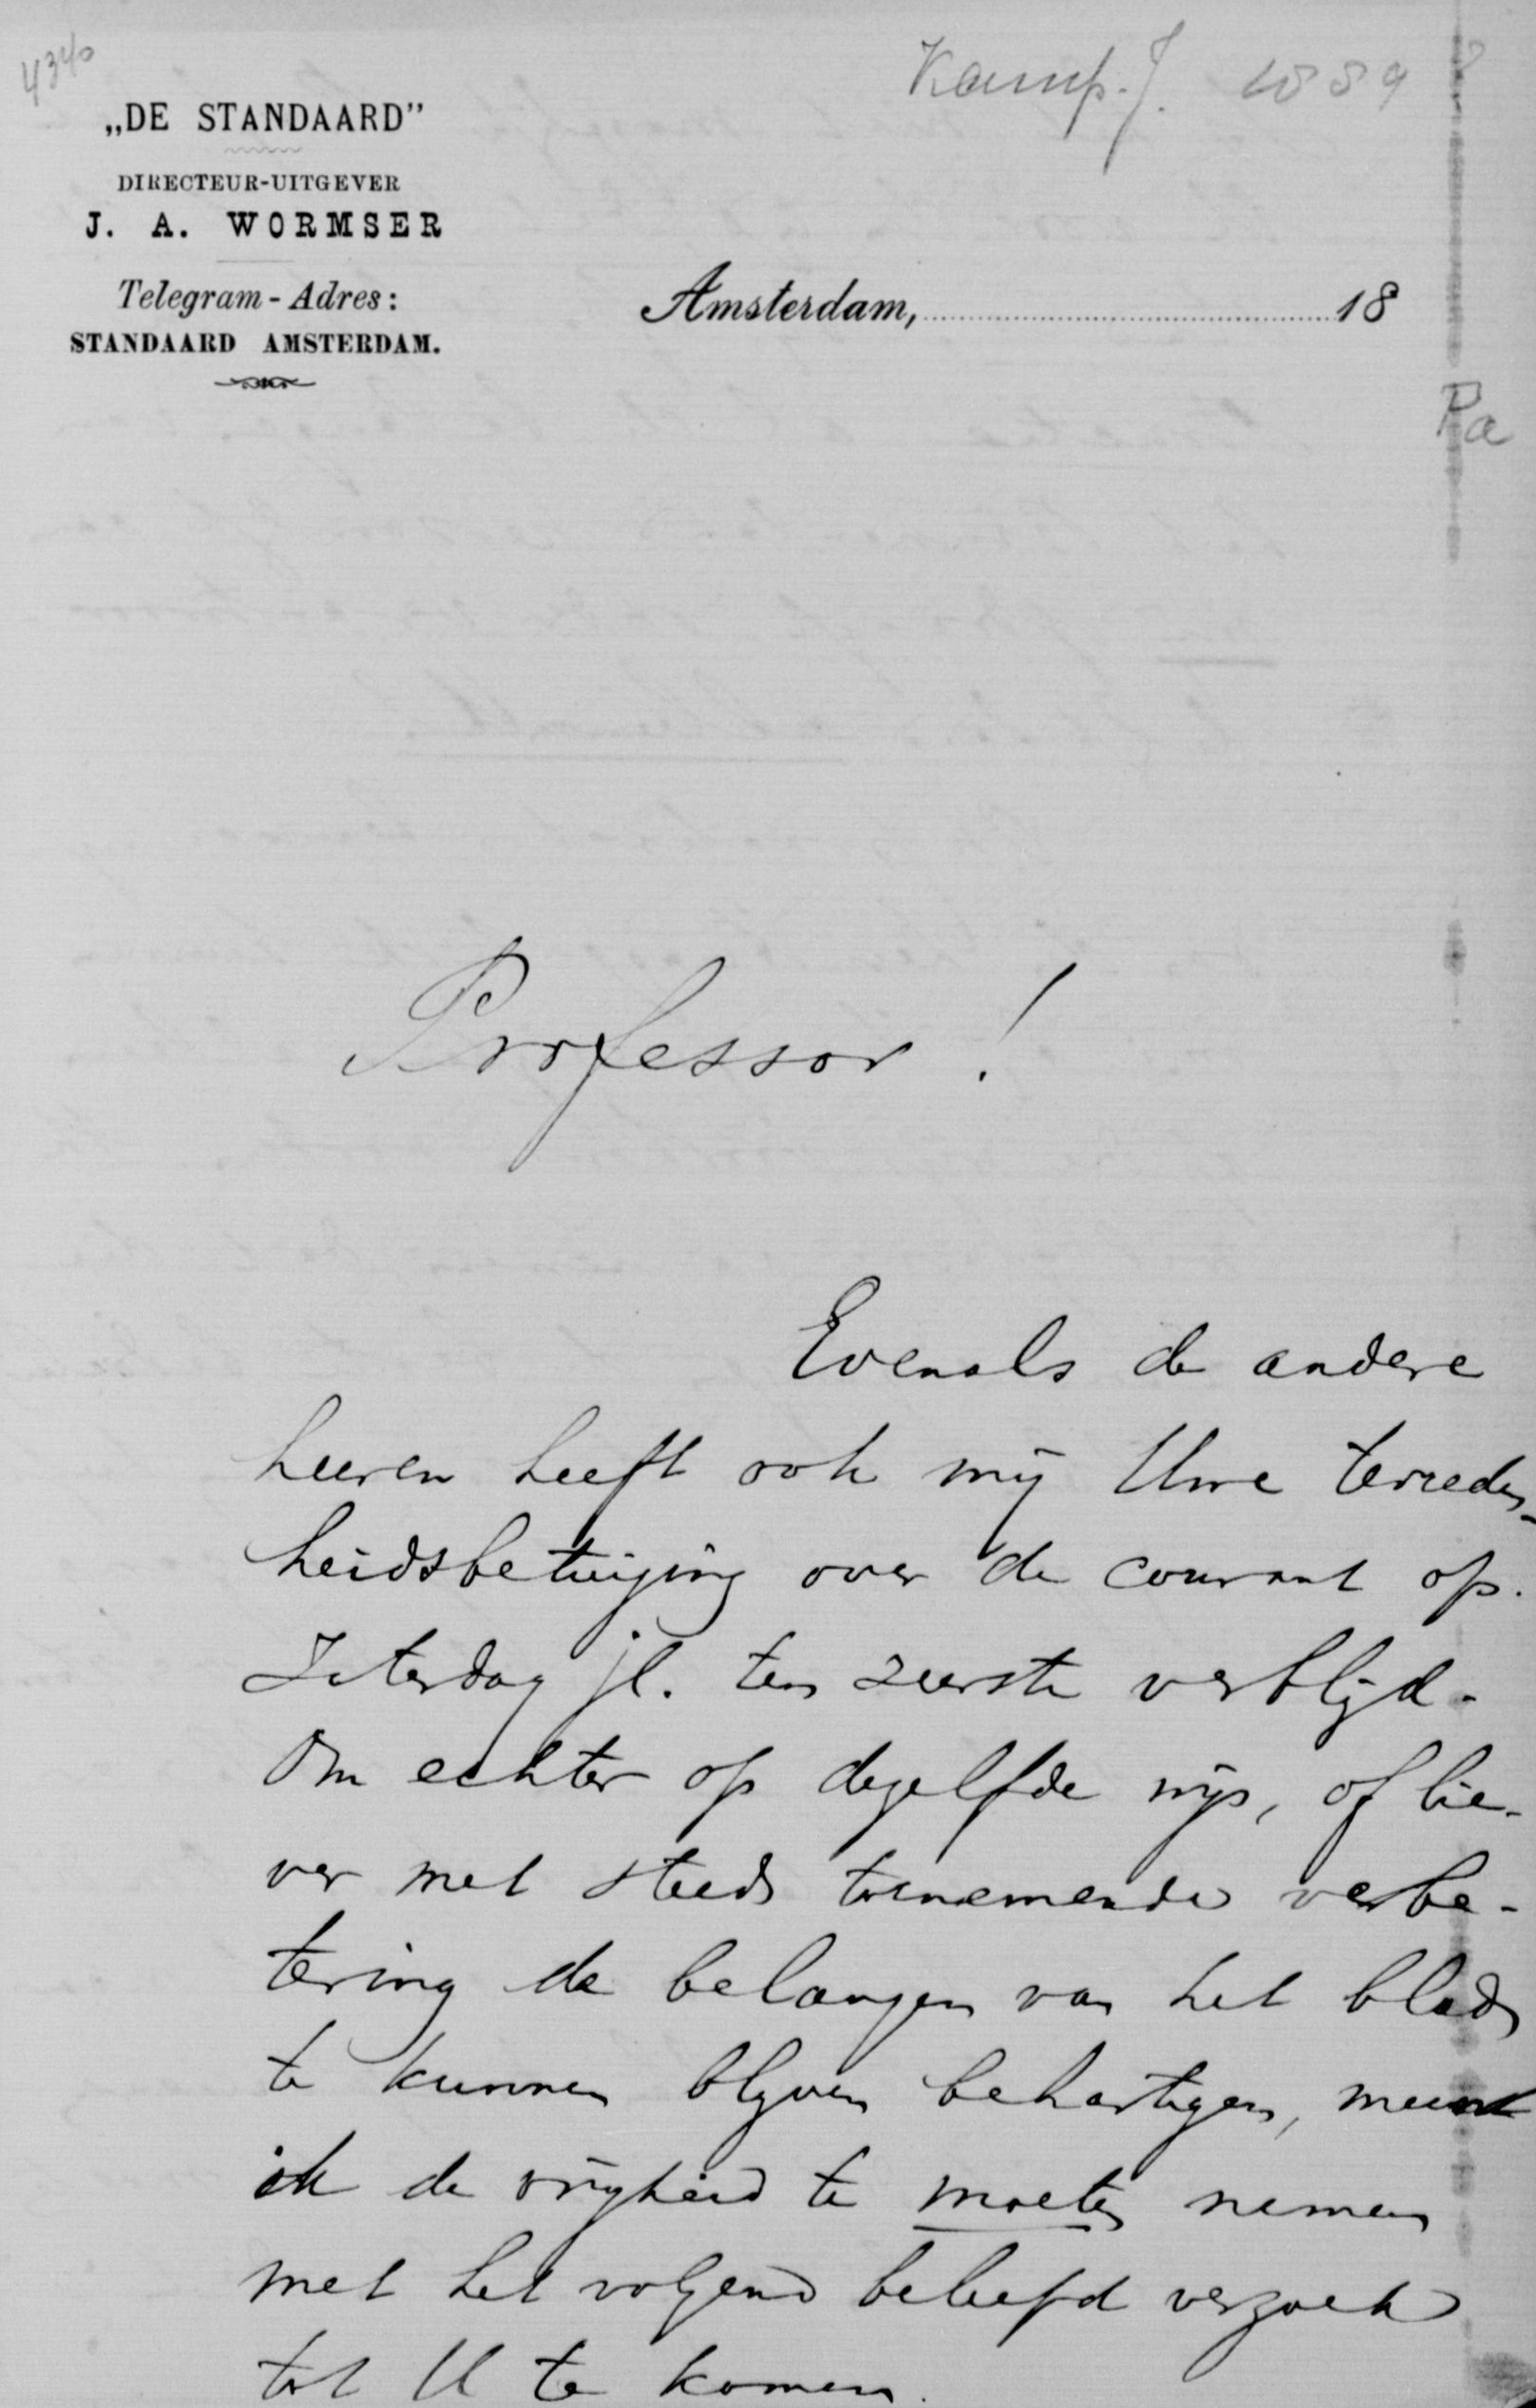 4340
Kamp. J. 1889
„DE STANDAARD”
DIRECTEUR-UITGEVER
J. A. WORMSER
Telegram-Adres:
STANDAARD AMSTERDAM.
Amsterdam, 18
Pa
Professor!
Evenals de andere
heeren heeft ook mij Uwe tevreden-
heidsbetuiging over de courant op
Zaterdag jl. ten zeerste verblijd.
Om echter op dezelfde wijs, of lie-
ver met steeds toenemende verbe-
tering de belangen van het blad
te kunnen blijven behartigen, meen
ik de vrijheid te moeten nemen
met het volgend beleefd verzoek
tot U te komen.